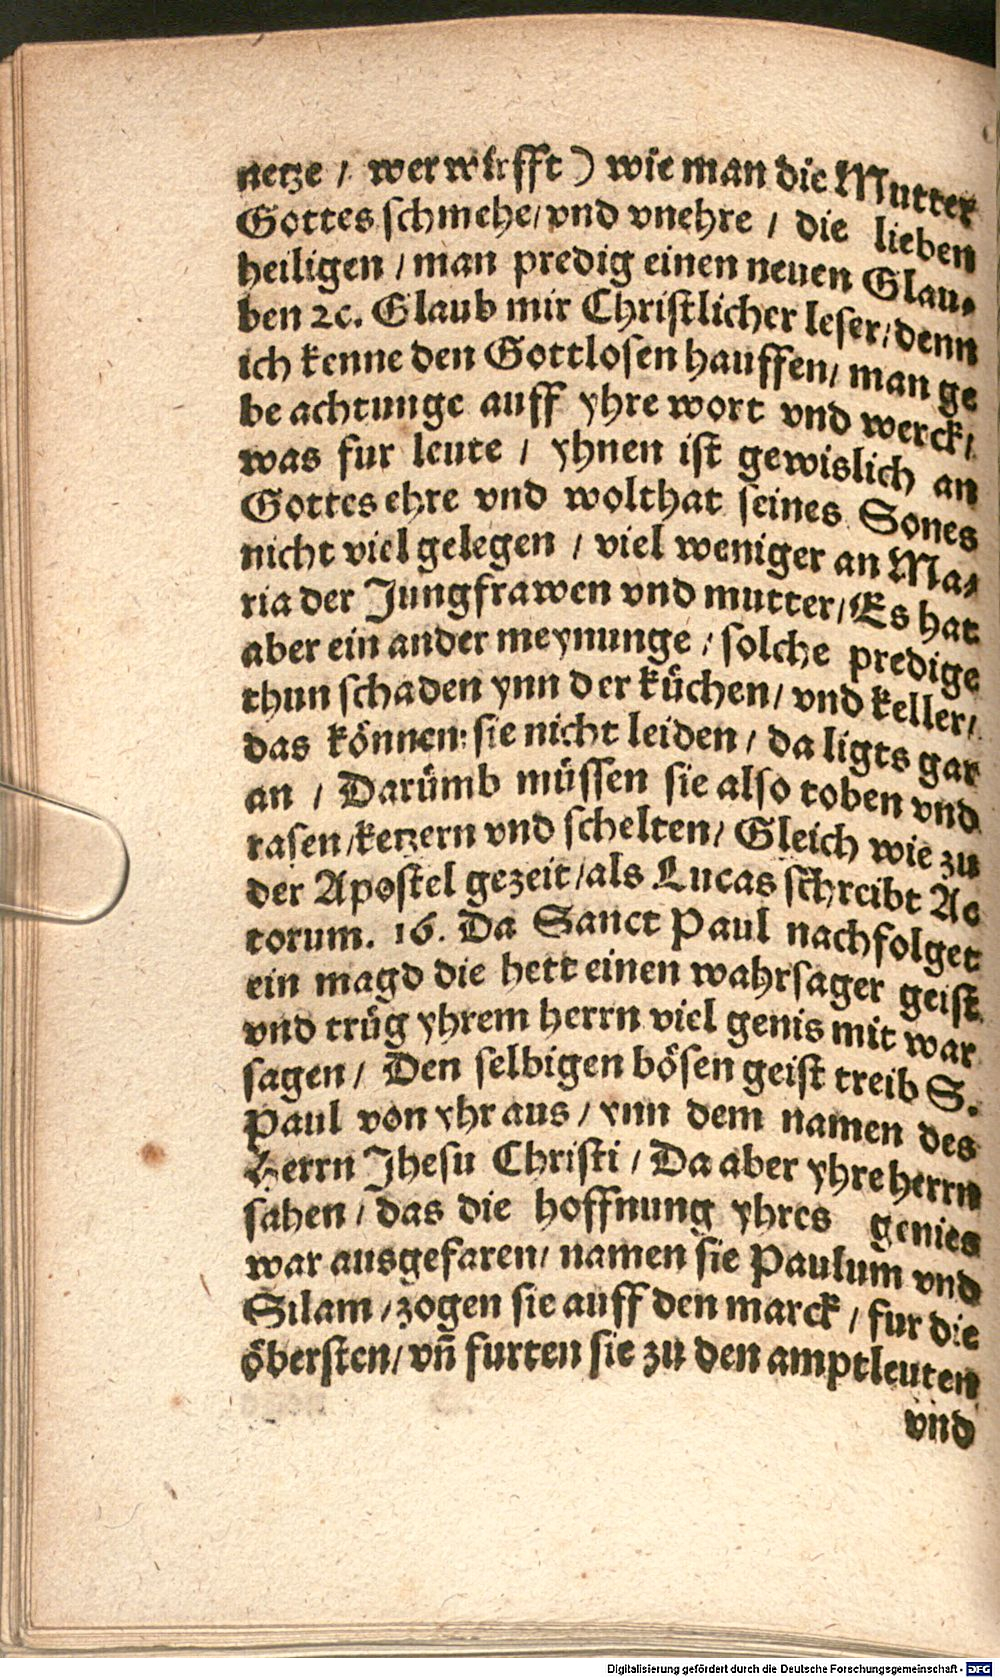 netze / wer würfft ) wie man die Mutter
Gottes schmehe / vnd vnehre / die lieben
heiligen / man predig einen neuen Glau-
ben ⁊c. Glaub mir Christlicher leser / denn
ich kenne den Gottlosen hauffen / man ge
be achtunge auff yhre wort vnd werck /
was fur leute / yhnen ist gewislich an
Gottes ehre vnd wolthat seines Sones
nicht viel gelegen / viel weniger an Ma-
ria der Jungfrawen vnd mutter / Es hat
aber ein ander meynunge / solche predige
thun schaden ynn der küchen / vnd keller /
das können sie nicht leiden / da ligts gar
an / Darümb müssen sie also toben vnd
rasen / ketzern vnd schelten / Gleich wie zu
der Apostel gezeit / als Lucas schreibt Ac
torum. 16. Da Sanct Paul nachfolget
ein magd die hett einen wahrsager geist
vnd trüg yhrem herrn viel genis mit war
sagen / Den selbigen bösen geist treib S.
Paul von yhr aus / ynn dem namen des
Herrn Jhesu Christi / Da aber yhre herrn
sahen / das die hoffnung yhres genies
war ausgefaren / namen sie Paulum vnd
Silam / zogen sie auff den marck / fur die
öbersten / vn̄ furten sie zu den amptleuten
vnd
Digitalisierung gefördert durch die Deutsche Forschungsgemeinschaft - DFG